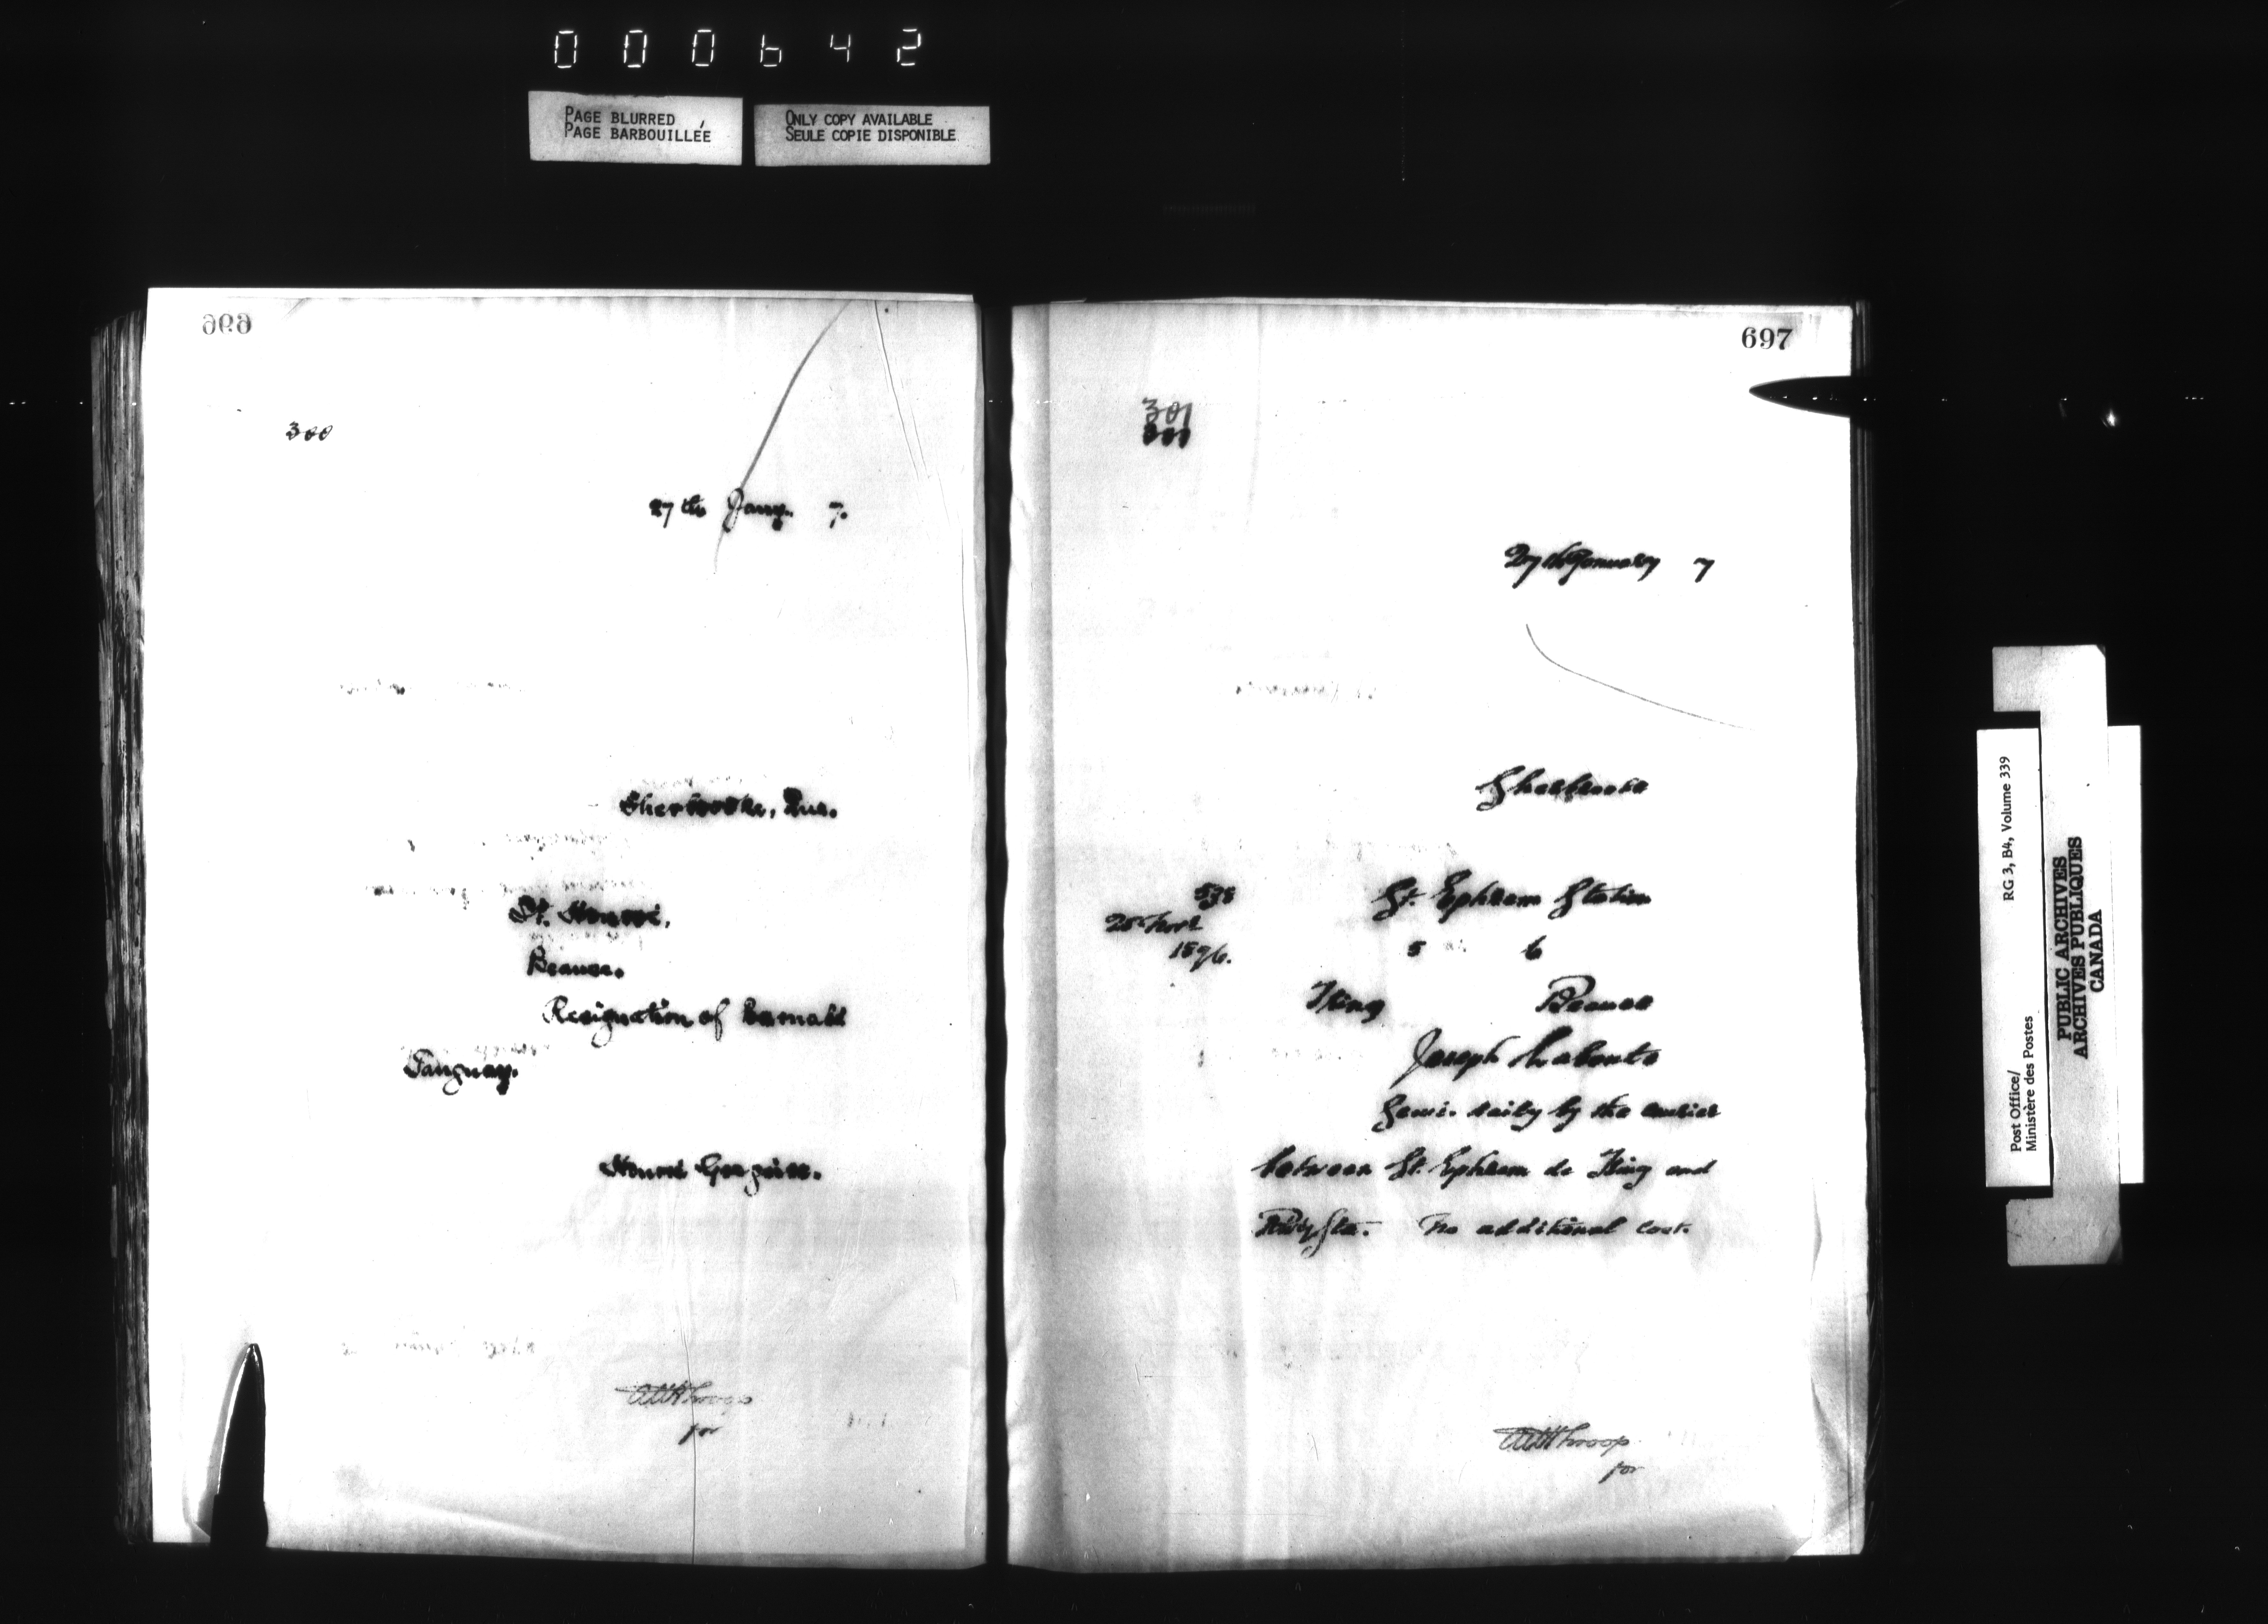 000642
PAGE BLURRED
PAGE BARBOUILLÉE
ONLY COPY AVAILABLE
SEULE COPIE DISPONIBLE
696
300
27th Jany. 7.
Sherbrooke, Que.
St. Honoré,
Beauce.
Resignation of
Tanguay.
Honoré
for
697
301
27th January 7
Sherbrooke
St. Ephrem Station
25th Novr
1896.
5 6
Tring Beauce
Joseph Labonte
Semi-daily by the courier
between St. Ephrem de Tring and
Ry Sta. No additional cost.
for
Post Office/
Ministère des Postes
RG 3, B4, Volume 339
PUBLIC ARCHIVES
ARCHIVES PUBLIQUES
CANADA